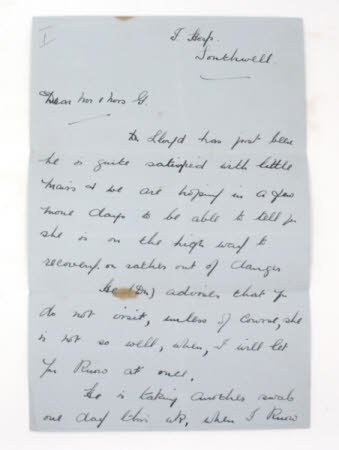 I
I. Hosp.
Southwell.
Dear Mr & Mrs G.
Dr Lloyd has just been
he is quite satisfied with little
Mavis & we are hoping in a few
more days to be able to tell you
she is on the high way to
recovery or rather out of danger
He (Dr) advises that you
do not visit, unless of course, she
is not so well, when, I will let
you know at once.
He is taking another swab
one day this wk, when I know